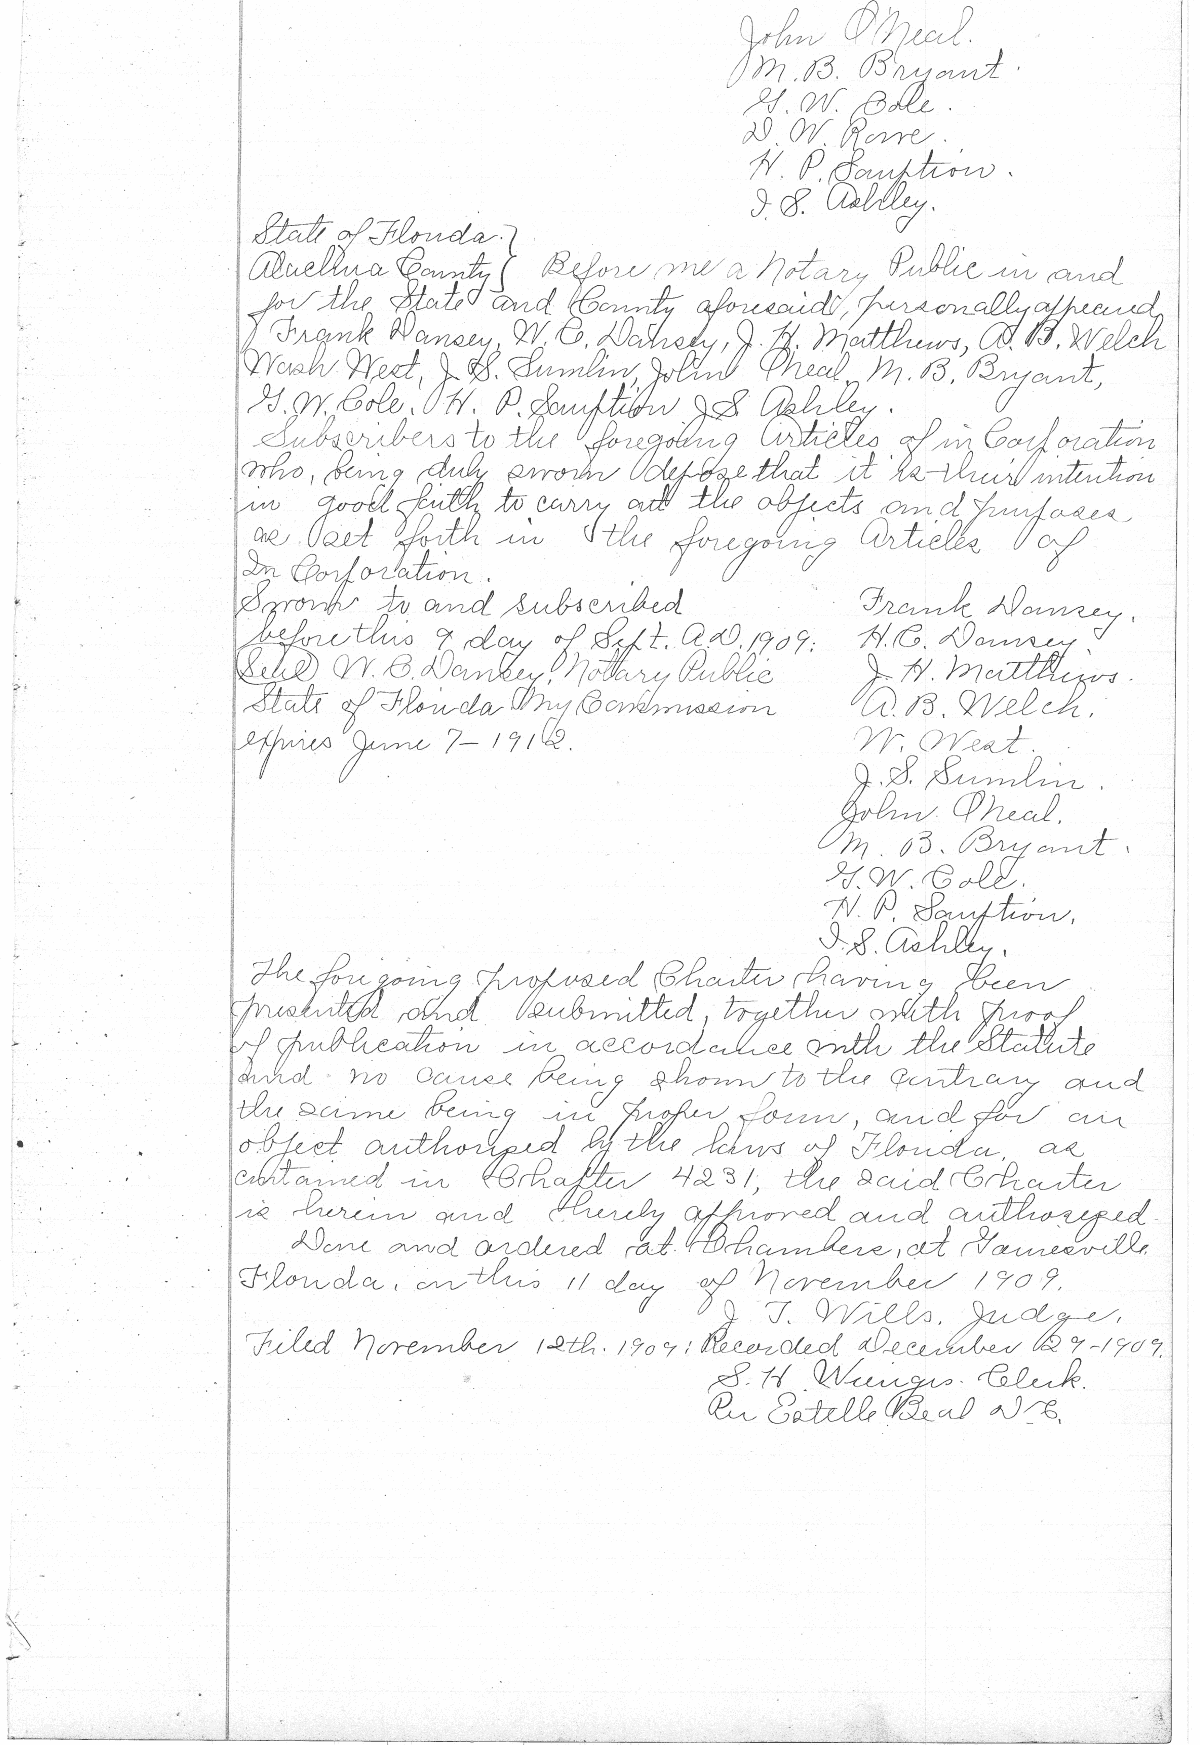 John O'Neal.
M. B. Bryant.
G. W. Cole.
D. W. Rowe.
H. P. Sauption.
I. S. Ashley.
State of Florida.}
Alachua County{ Before me a Notary Public in and
for the State and County aforesaid, personally appeared
Frank Dansey, W. C. Dansey, J. H. Matthews, A. B. Welch
Wash West, J. S. Sumlin, John O'Neal, M. B. Bryant,
G. W. Cole. H. P. Sauption J S Ashley.
Subscribers to the foregoing Articles of in Corporation
who, being duly sworn depose that it is their intention
in good faith to carry out the objects and purposes
as set forth in the foregoing Articles of
In Corporation.
Sworn to and subscribed
before this 9 day of Sept. A.D. 1909:
(Seal) W. C. Dansey, Notary Public
State of Florida My Commission
expires June 7- 1912.
Frank Dansey.
H. C. Dansey.
J. H. Matthews.
A. B. Welch.
W. West.
J. S. Sumlin.
John O'Neal.
M. B. Bryant.
G. W. Cole.
H. P. Sauption.
I. S. Ashley.
The foregoing proposed Charter having been
presented and submitted, together with proof
of publication in accordance with the Statute
and no cause being shown to the contrary and
the same being in proper form, and for an
object authorized by the laws of Florida, as
contained in Chapter 4231, the said Charter
is herein and hereby approved and authorized.
Done and ordered at Chambers, at Gainesville
Florida, on this 11 day of November 1909.
J. T. Wills. Judge.
Filed November 12th. 1909: Recorded December 29-1909.
S. H. Wienges. Clerk.
Per Estelle Beal D. C.